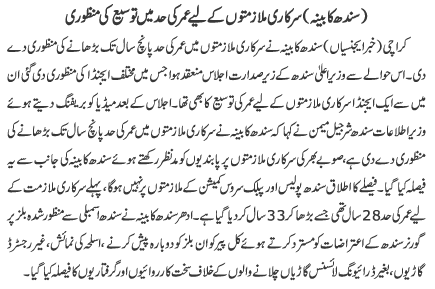 (سندھ کابینہ) سرکاری ملازمتوں کے لیے عمر کی حد میں توسیع کی منظوری
کراچی (خبر ایجنسیاں) سندھ کابینہ نے سرکاری ملازمتوں میں عمر کی حد پانچ سال تک بڑھانے کی منظوری دے
دی۔ اس حوالے سے وزیر اعلیٰ سندھ کے زیر صدارت اجلاس منعقد ہوا جس میں مختلف ایجنڈا کی منظوری دی گئی ان
میں سے ایک ایجنڈا سرکاری ملازمتوں کے لیے عمر کی توسیع کا بھی تھا۔ اجلاس کے بعد میڈیا کو بریفنگ دیتے ہوئے
وزیر اطلاعات سندھ شرجیل میمن نے کہا کہ سندھ کابینہ نے سرکاری ملازمتوں میں عمر کی حد پانچ سال تک بڑھانے کی
منظوری دے دی ہے، صوبے بھر کی سرکاری ملازمتوں پر پابندیوں کو مدنظر رکھتے ہوئے سندھ کابینہ کی جانب سے یہ
فیصلہ کیا گیا۔ فیصلے کا اطلاق سندھ پولیس اور پبلک سروس کمیشن کے ملازمتوں پر نہیں ہوگا، پہلے سرکاری ملازمت کے
لیے عمر کی حد 28 سال تھی جسے بڑھا کر 33 سال کر دیا گیا ہے۔ ادھر سندھ کابینہ نے سندھ اسمبلی سے منظور شدہ بلز پر
گورنر سندھ کے اعتراضات کو مسترد کرتے ہوئے کل پیر کو ان بلز کو دوبارہ پیش کرنے، اسلحہ کی نمائش، غیر رجسٹرڈ
گاڑیوں، بغیر ڈرائیونگ لائسنس گاڑیاں چلانے والوں کے خلاف سخت کارروائیوں اور گرفتاریوں کا فیصلہ کیا گیا۔